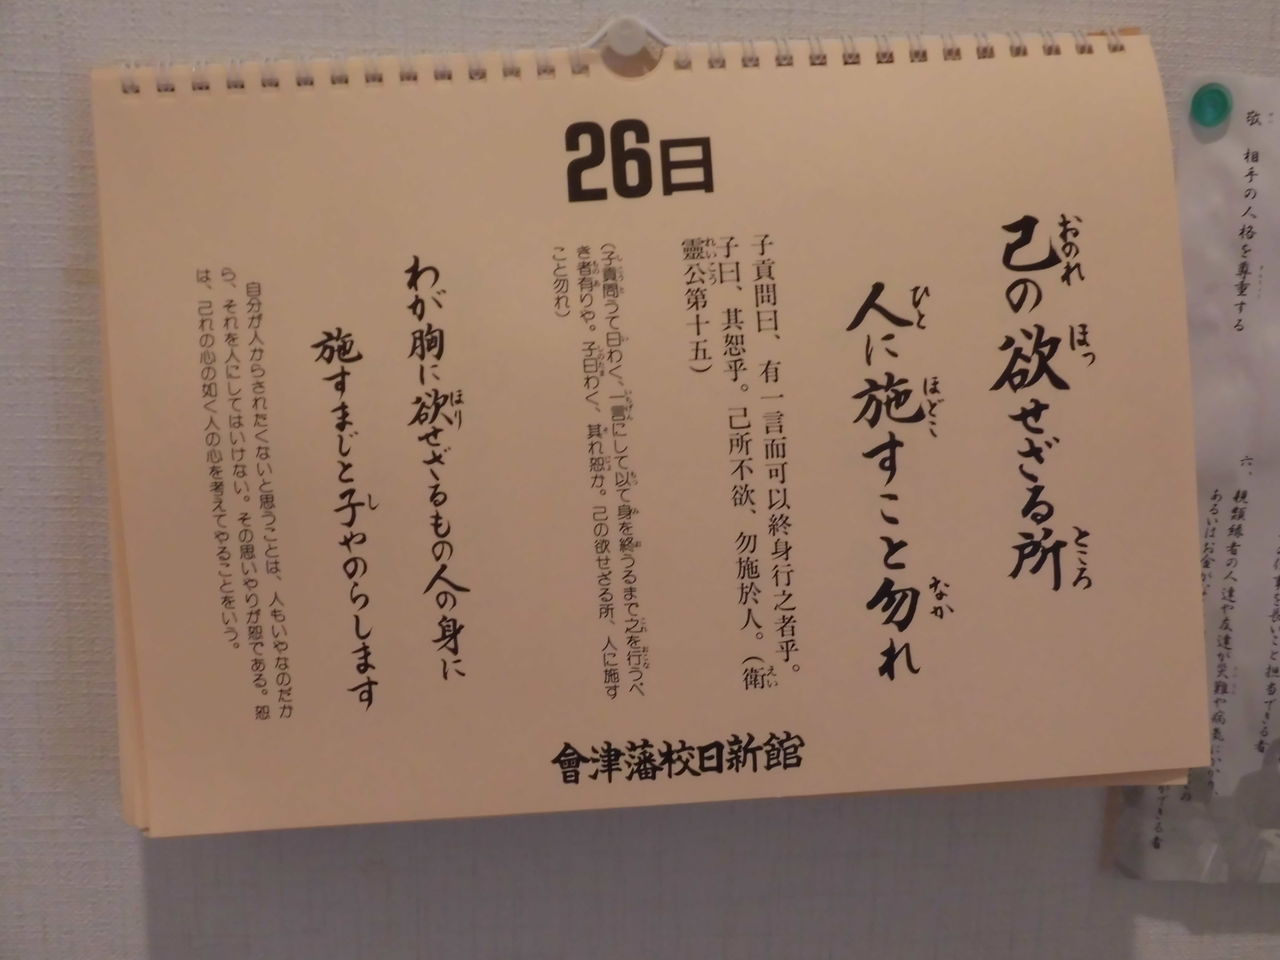 26日
己の欲せざる所
人に施すこと勿れ
子貢問曰、有一言而可以終身行之者乎。
子曰、其恕乎。己所不欲、勿施於人。(衛
靈公第十五)
(子貢問うて曰わく、一言にして以て身を終うるまで之を行うべ
き者有りや。子曰わく、其れ恕か。己の欲せざる所、人に施す
こと勿れ)
わが胸に欲せざるもの人の身に
施すまじと子やのらします
自分が人からされたくないと思うことは、人もいやなのだか
ら、それを人にしてはいけない。その思いやりが恕である。恕
は、己れの心の如く人の心を考えてやることをいう。
會津藩校日新館
相手の人格を尊重する
六、親類縁者の人達や友達が災難や病気にかかり、
あるいはお金が